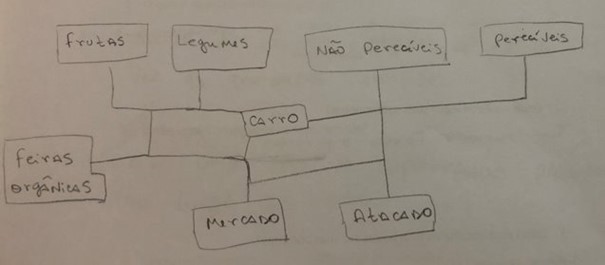 frutas
Legumes
NÃO Perecíveis
perecíveis
CARRO
feiras
orgânicas
MerCADO
AtACADO